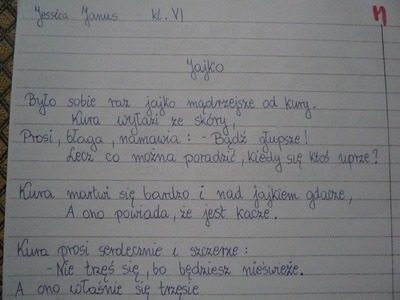 Jessica Janus kl. VI n
Jajko
Było sobie raz jajko mądrzejsze od kury.
Kura wyłazi ze skóry,
Prosi, błaga, namawia: - Bądź głupsze!
Lecz co można poradzić, kiedy się ktoś uprze?
Kura martwi się bardzo i nad jajkiem gdacze,
A ono powiada, że jest kacze.
Kura prosi serdecznie i szczerze:
- Nie trzęś się, bo będziesz nieświeże.
A ono właśnie się trzęsie